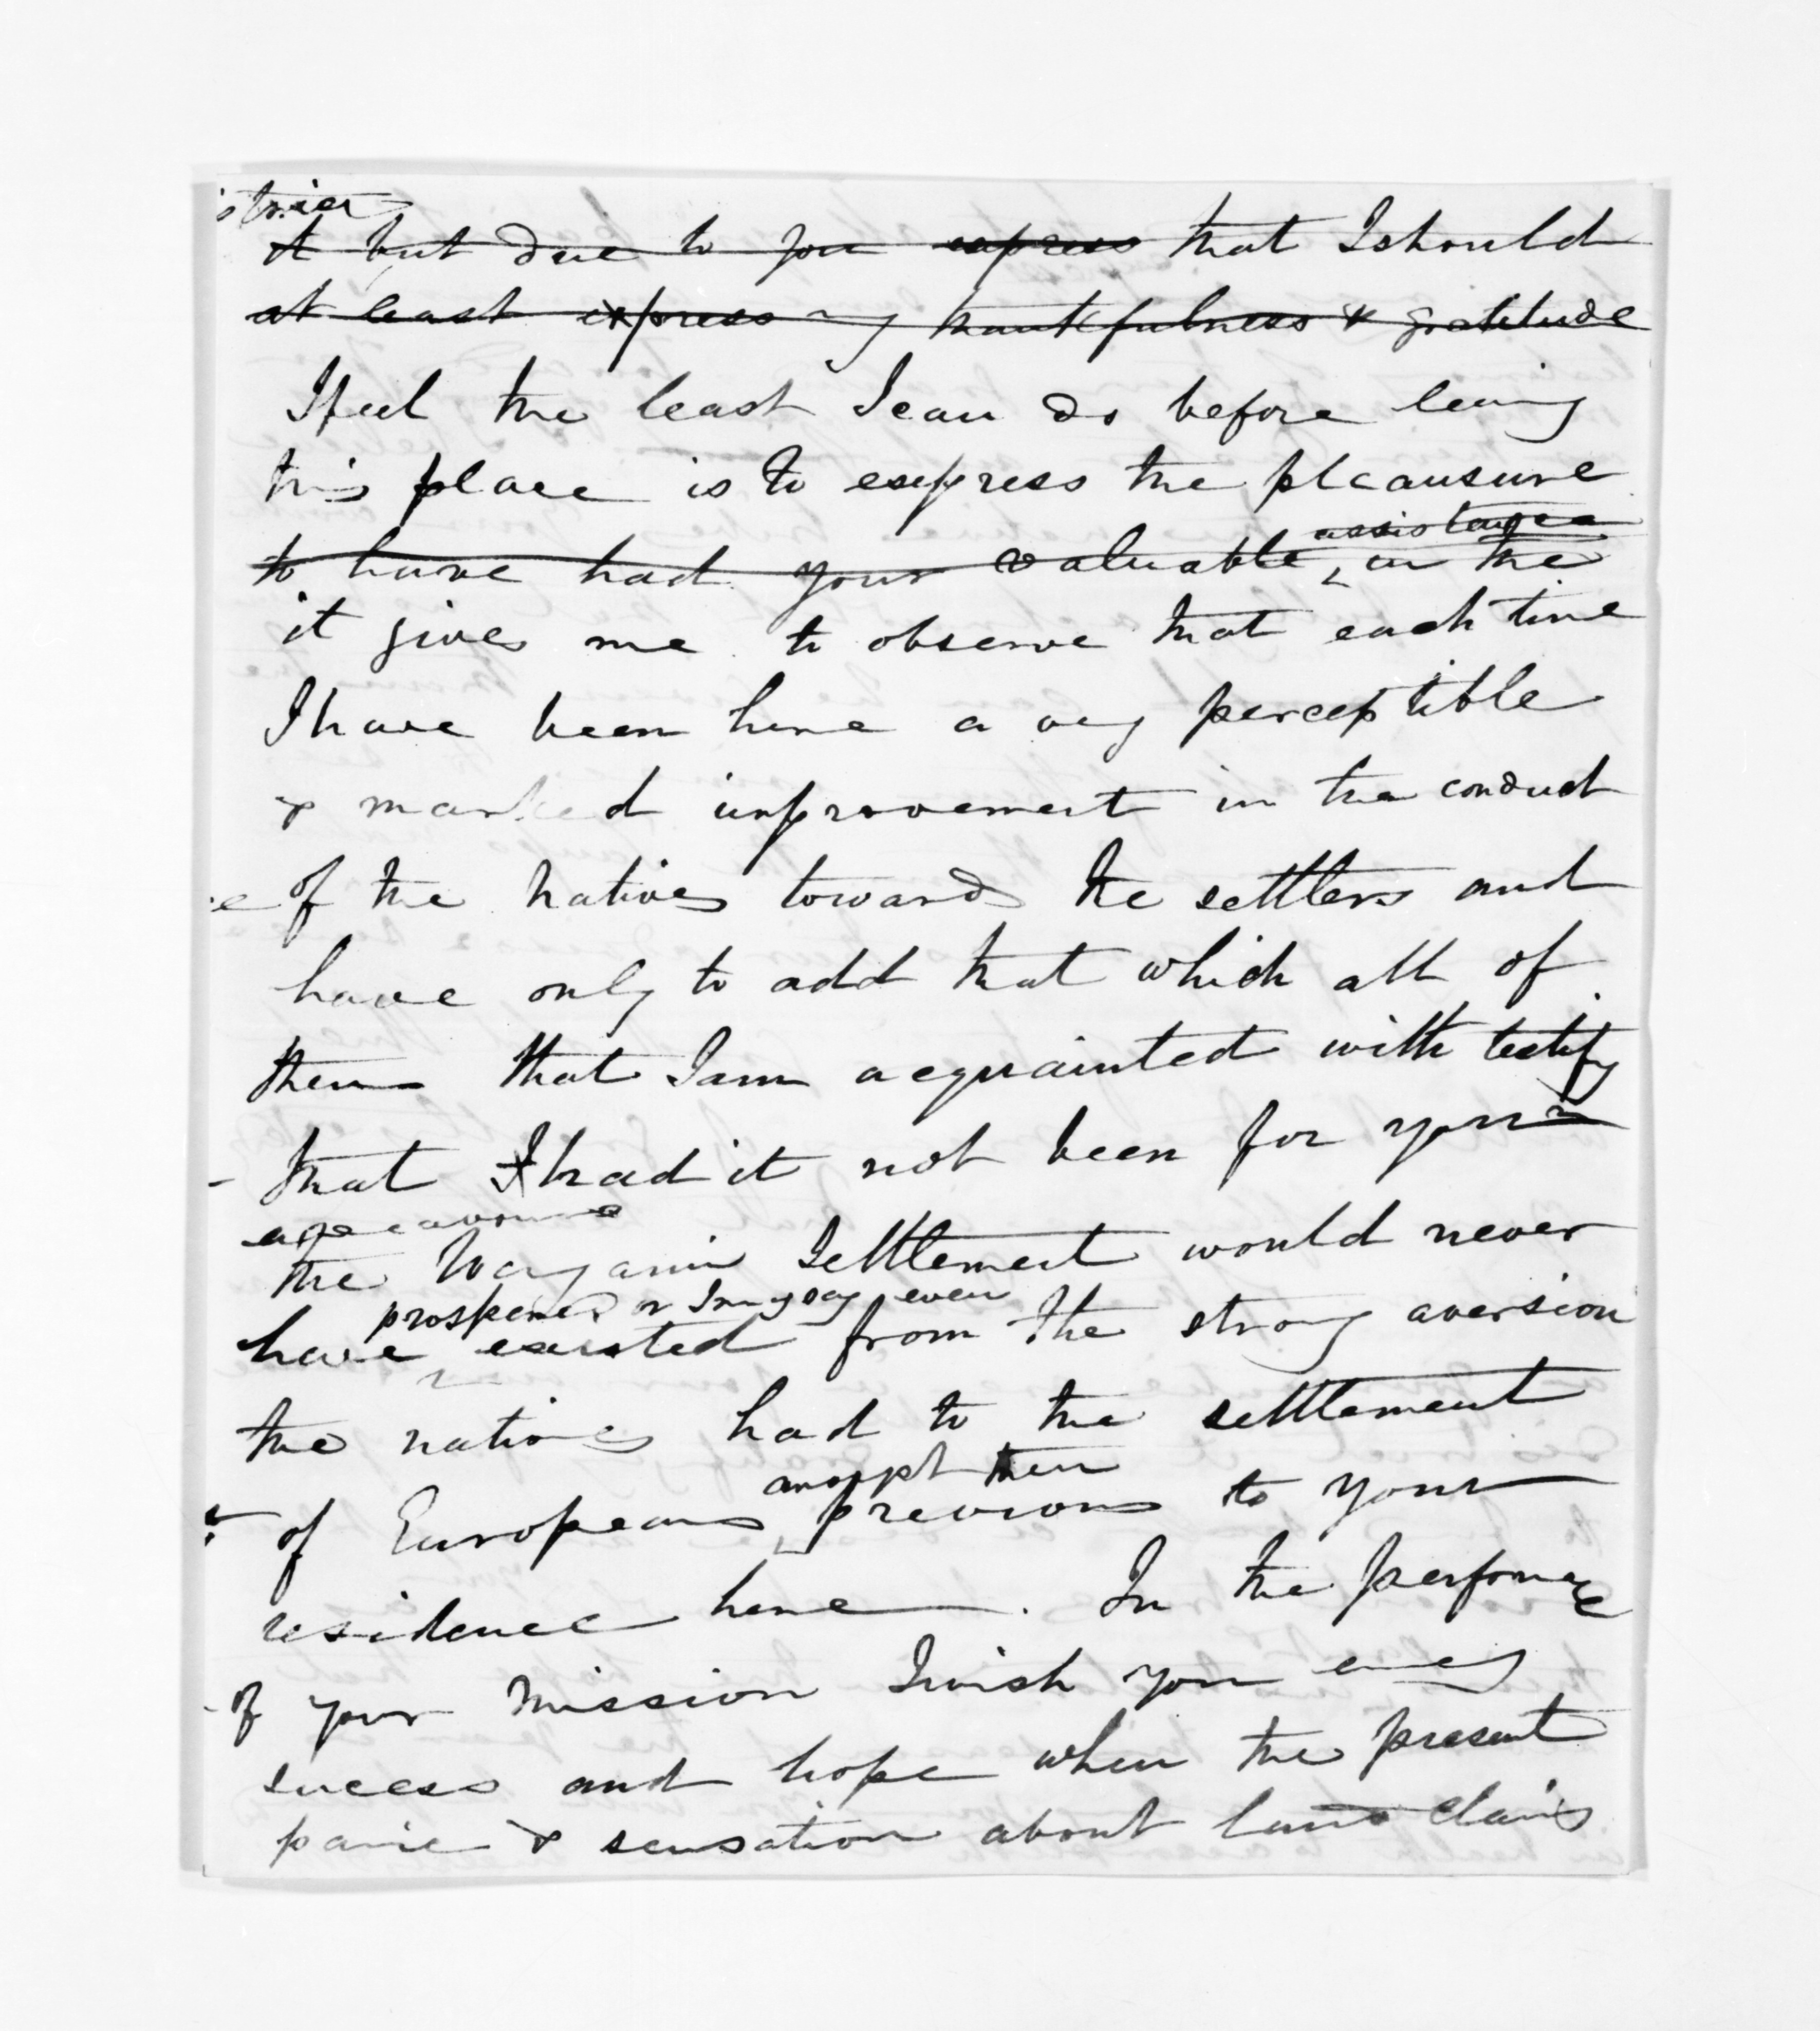 it but due to you express that I should
at least express my thankfulness & gratitude
I feel the least I can do before leaving
this place is to express the pleausure
assistance
to have had your valuable in the
it gives me to observe that each time
I have been here a very perceptible
& marked improvement in the conduct
of the natives towards the settlers and
have only to add that which all of
them that I am acquainted with testify
that I had it not been for your
the Wanganui Settlement would never
prospered or I may say even
have existed from the strong aversion
the natives had to the settlement
amongst them
of Europeans previous to your
residence here. In the performance
of your mission I wish you every
success and hope when the present
panic & sensation about land claims